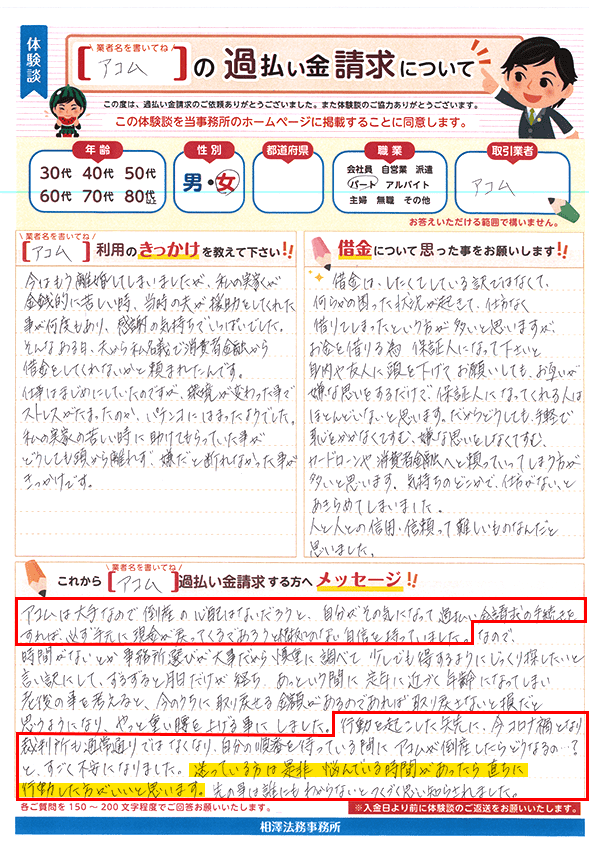 体験談
業者名を書いてね
[アコム]の過払い金請求について
この度は、過払い金請求のご依頼ありがとうございました。また体験談のご協力ありがとうございます。
この体験談を当事務所のホームページに掲載することに同意します。
年齢
30代 40代 50代
60代 70代 80代以上
性別
男・女
都道府県
職業
会社員 自営業 派遣
パート アルバイト
主婦 無職 その他
取引業者
アコム
お答えいただける範囲で構いません。
業者名を書いてね
[アコム]利用のきっかけを教えて下さい!!
今はもう離婚してしまいましたが、私の実家が
金銭的に苦しい時、当時の夫が援助をしてくれた
事が何度もあり、感謝の気持ちでいっぱいでした。
そんなある日、夫から私名義で消費者金融から
借金をしてくれないかと頼まれたんです。
仕事はまじめにしていたのですが、環境が変わった事で
ストレスがたまったのか、パチンコにはまったようでした。
私の実家の苦しい時に助けてもらっていた事が
どうしても頭から離れず、嫌だと断れなかった事が
きっかけです。
借金について思った事をお願いします!!
借金は、したくてしている訳ではなくて、
何らかの困った状況が起きて、仕方なく
借りてしまったという方が多いと思いますが
お金を借りる為 保証人になって下さいと
身内や友人に頭を下げてお願いしても、お互いが
嫌な思いをするだけで、保証人になってくれる人は
ほとんどいないと思います。だからどうしても、手軽で
恥をかかなくてすむ、嫌な思いをしなくてすむ、
カードローンや消費者金融へと頼っていってしまう方が
多いと思います。気持ちのどこかで、仕方がないと
あきらめてしまいました。
人と人との信用・信頼って難しいものなんだと
思いました。
業者名を書いてね
これから[アコム]過払い金請求する方へメッセージ!!
アコムは大手なので倒産の心配はないだろうと、自分がその気になって過払い金請求の手続きを
すれば、必ず手元に現金が戻ってくるであろうと根拠のない自信を持っていました。なので、
時間がないとか事務所選びが大事だから慎重に調べて少しでも得するようにじっくり探したいと
言い訳にして、ずるずると月日だけが経ち、あっという間に定年に近づく年齢になってしまい
老後の事を考えると、今のうちに取り戻せる金額があるのであれば取り戻さないと損だと
思うようになり、やっと重い腰を上げる事にしました。行動を起こした矢先に、今コロナ禍となり
裁判所も通常通りではなくなり、自分の順番を待っている間にアコムが倒産したらどうなるの…?
と、すごく不安になりました。迷っている方は是非 悩んでいる時間があったら直ちに
行動した方がいいと思います。先の事は誰にもわからないとつくづく思い知らされました。
各ご質問を150～200文字程度でご回答お願いいたします。
※入金日より前に体験談のご返送をお願いいたします。
相澤法務事務所